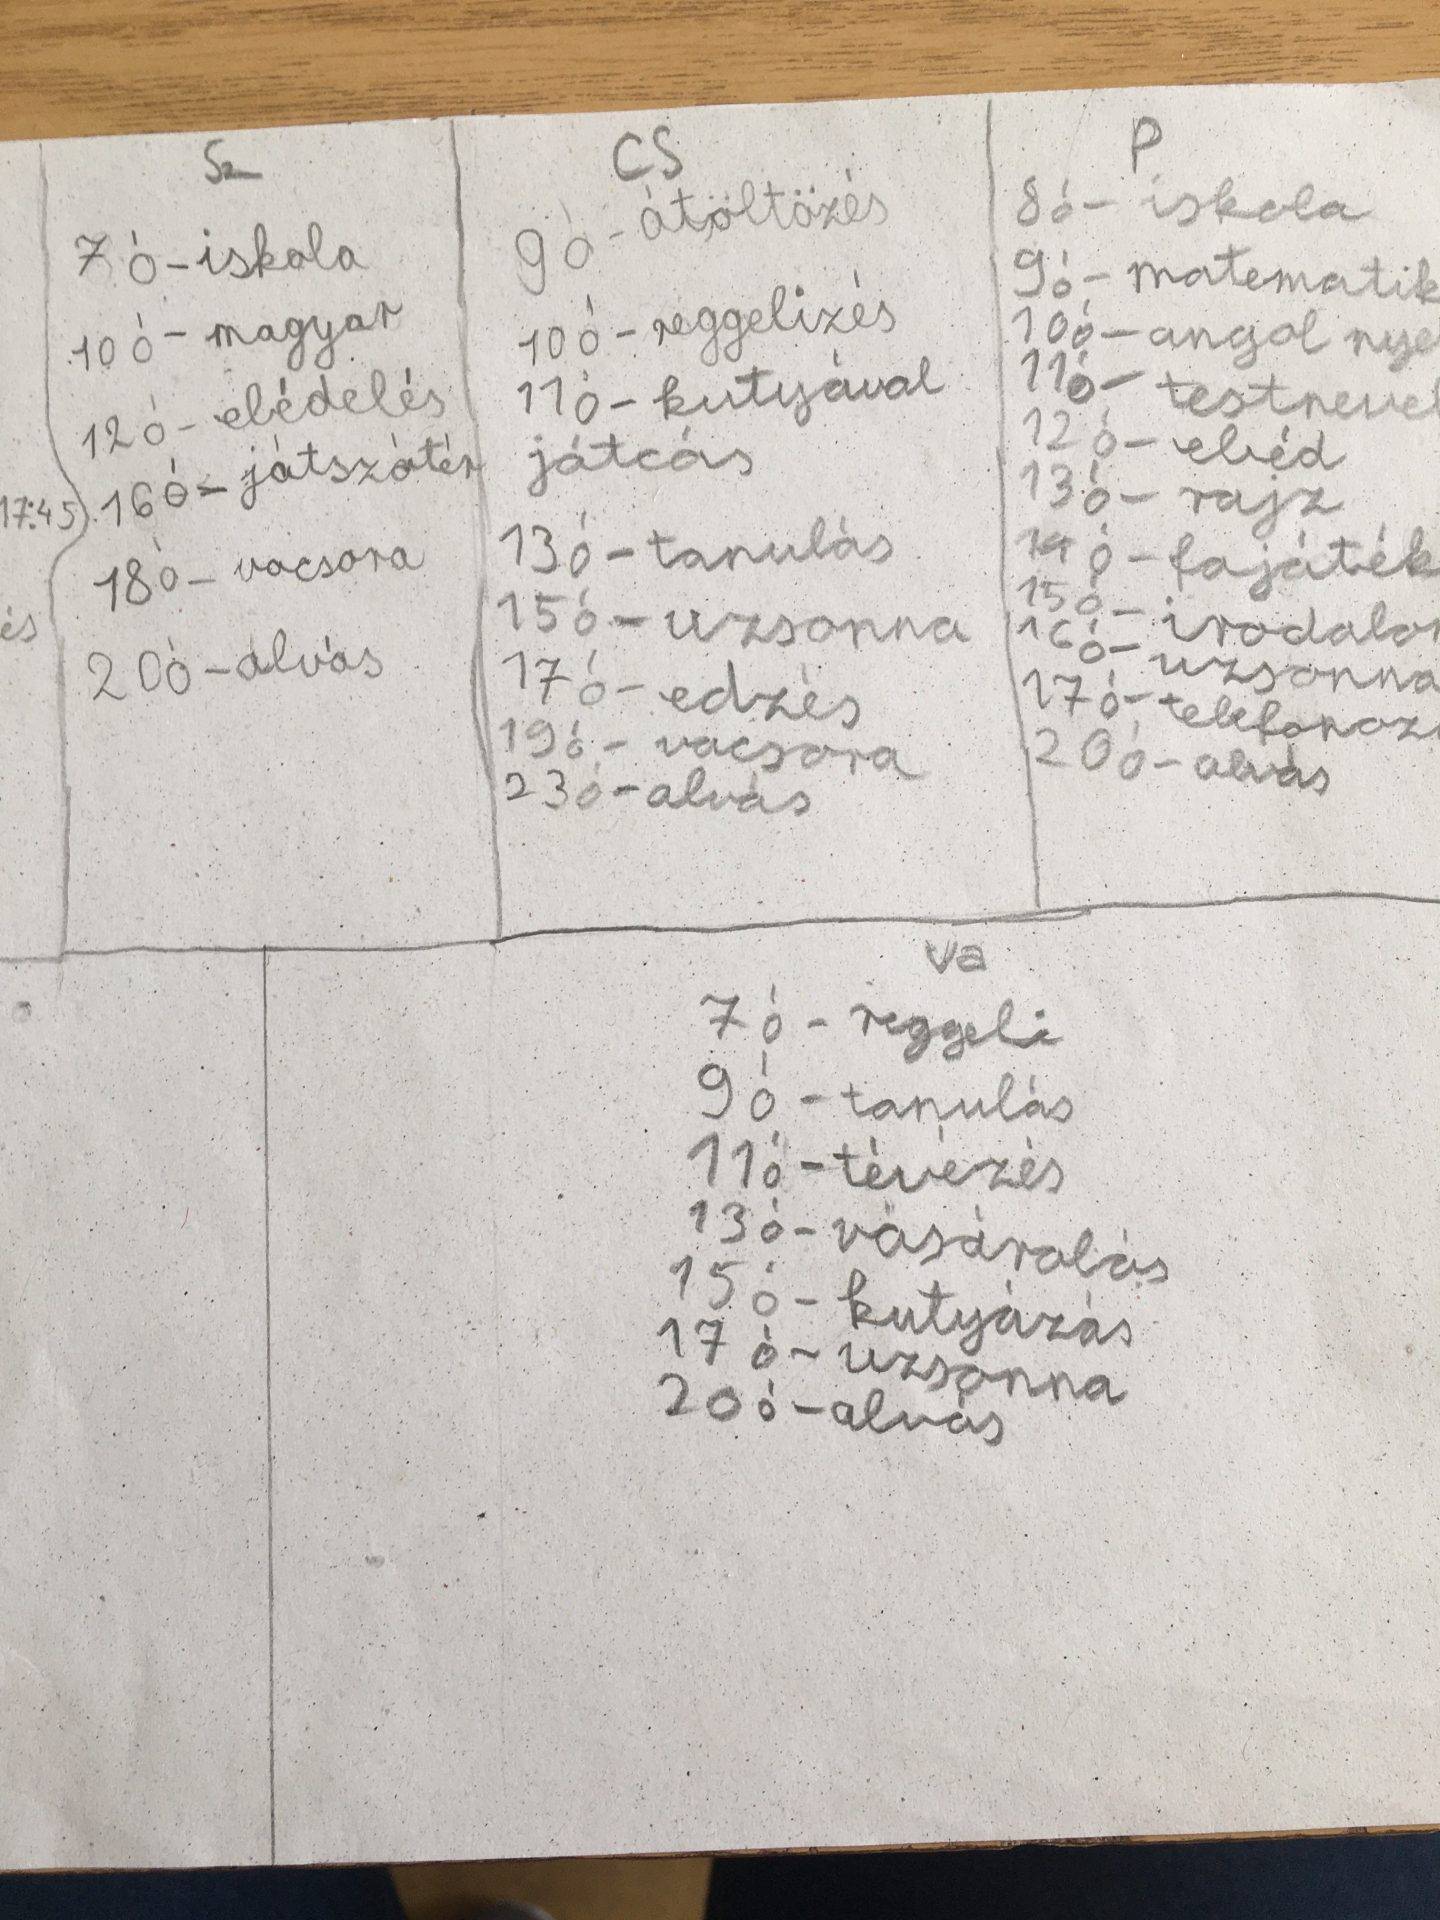 17:45
és
Sz
7 ó - iskola
10 ó - magyar
12 ó - ebédelés
16 ó - játszótér
18 ó - vacsora
20 ó - alvás
CS
9 ó - átöltözés
10 ó - reggelizés
11 ó - kutyával
játcás
13 ó - tanulás
15 ó - uzsonna
17 ó - edzés
19 ó - vacsora
23 ó - alvás
P
8 ó - iskola
9 ó - matematik
10 ó - angol nye
11 ó - testnevel
12 ó - ebéd
13 ó - rajz
14 ó - fajáték
15 ó - irodalom
16 ó - uzsonna
17 ó - telefonoz
20 ó - alvás
Va
7 ó - reggeli
9 ó - tanulás
11 ó - tévézés
13 ó - vásárolás
15 ó - kutyázás
17 ó - uzsonna
20 ó - alvás